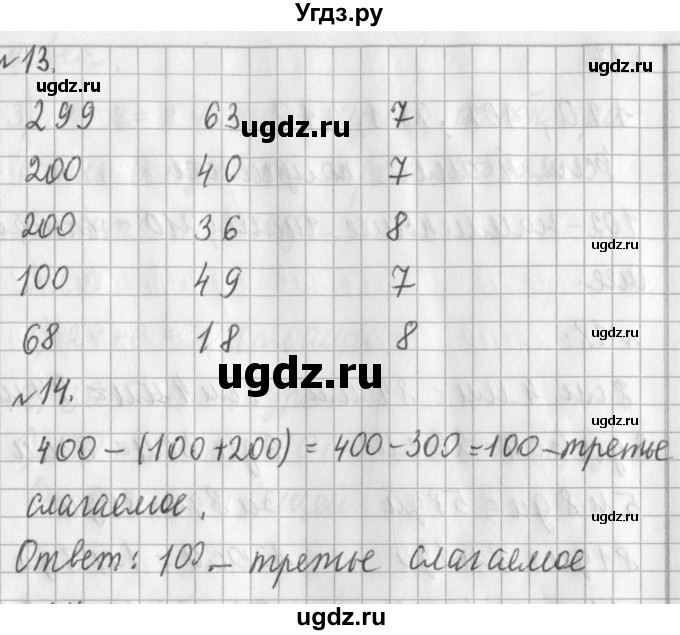 Угдз.ру
№13.
299 63 7
200 40 7
200 36 8
100 49 7
68 18 8
№14.
400 - (100+200) = 400-300=100-третье
слагаемое.
Ответ: 100.- третье слагаемое
ugdz.ru
ugdz.ru
ugdz.ru
ugdz.ru
ugdz.ru
ugdz.ru
ugdz.ru
ugdz.ru
ugdz.ru
ugdz.ru